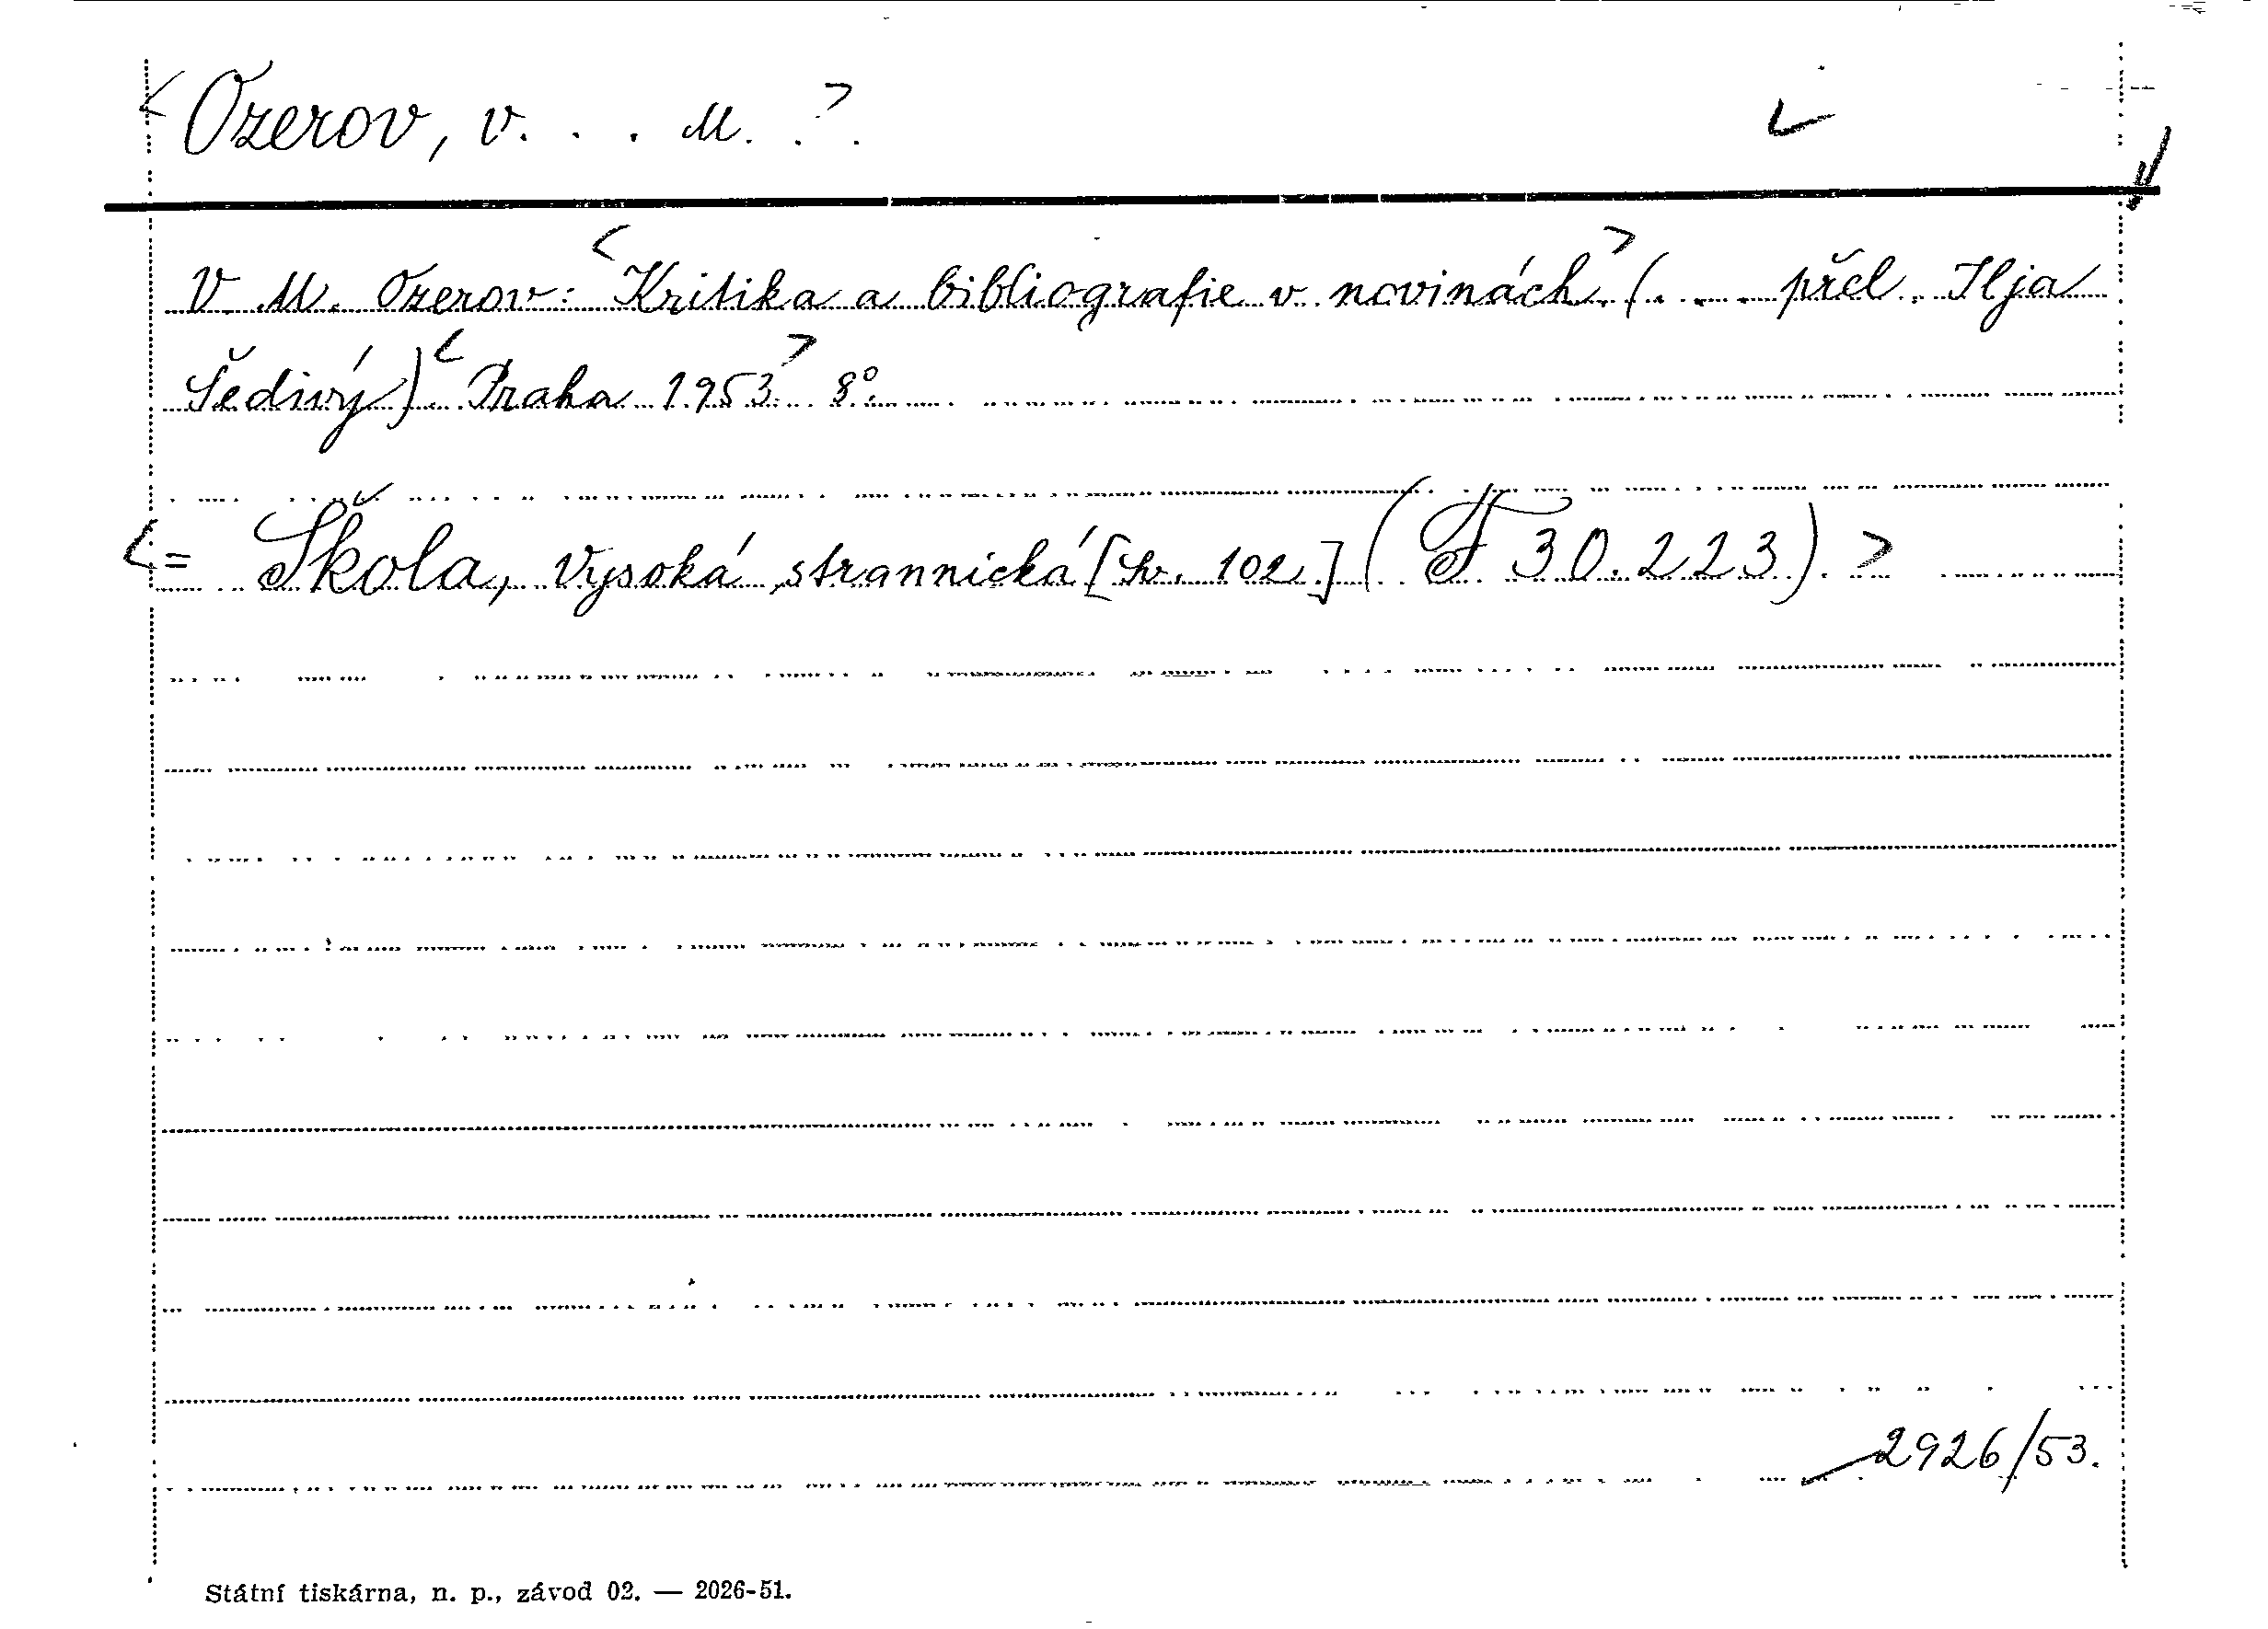 <Ozerov, V. . . M. . .>
V. M. Ozerov: <Kritika a bibliografie v novinách.> (. . . přel. Ilja
Šedivý) <Praha 1953> 8°.
<= Škola, Vysoká strannická [Sv. 102.] (F 30.223). >
2926/53.
Státní tiskárna, n. p., závod 02. — 2026-51.